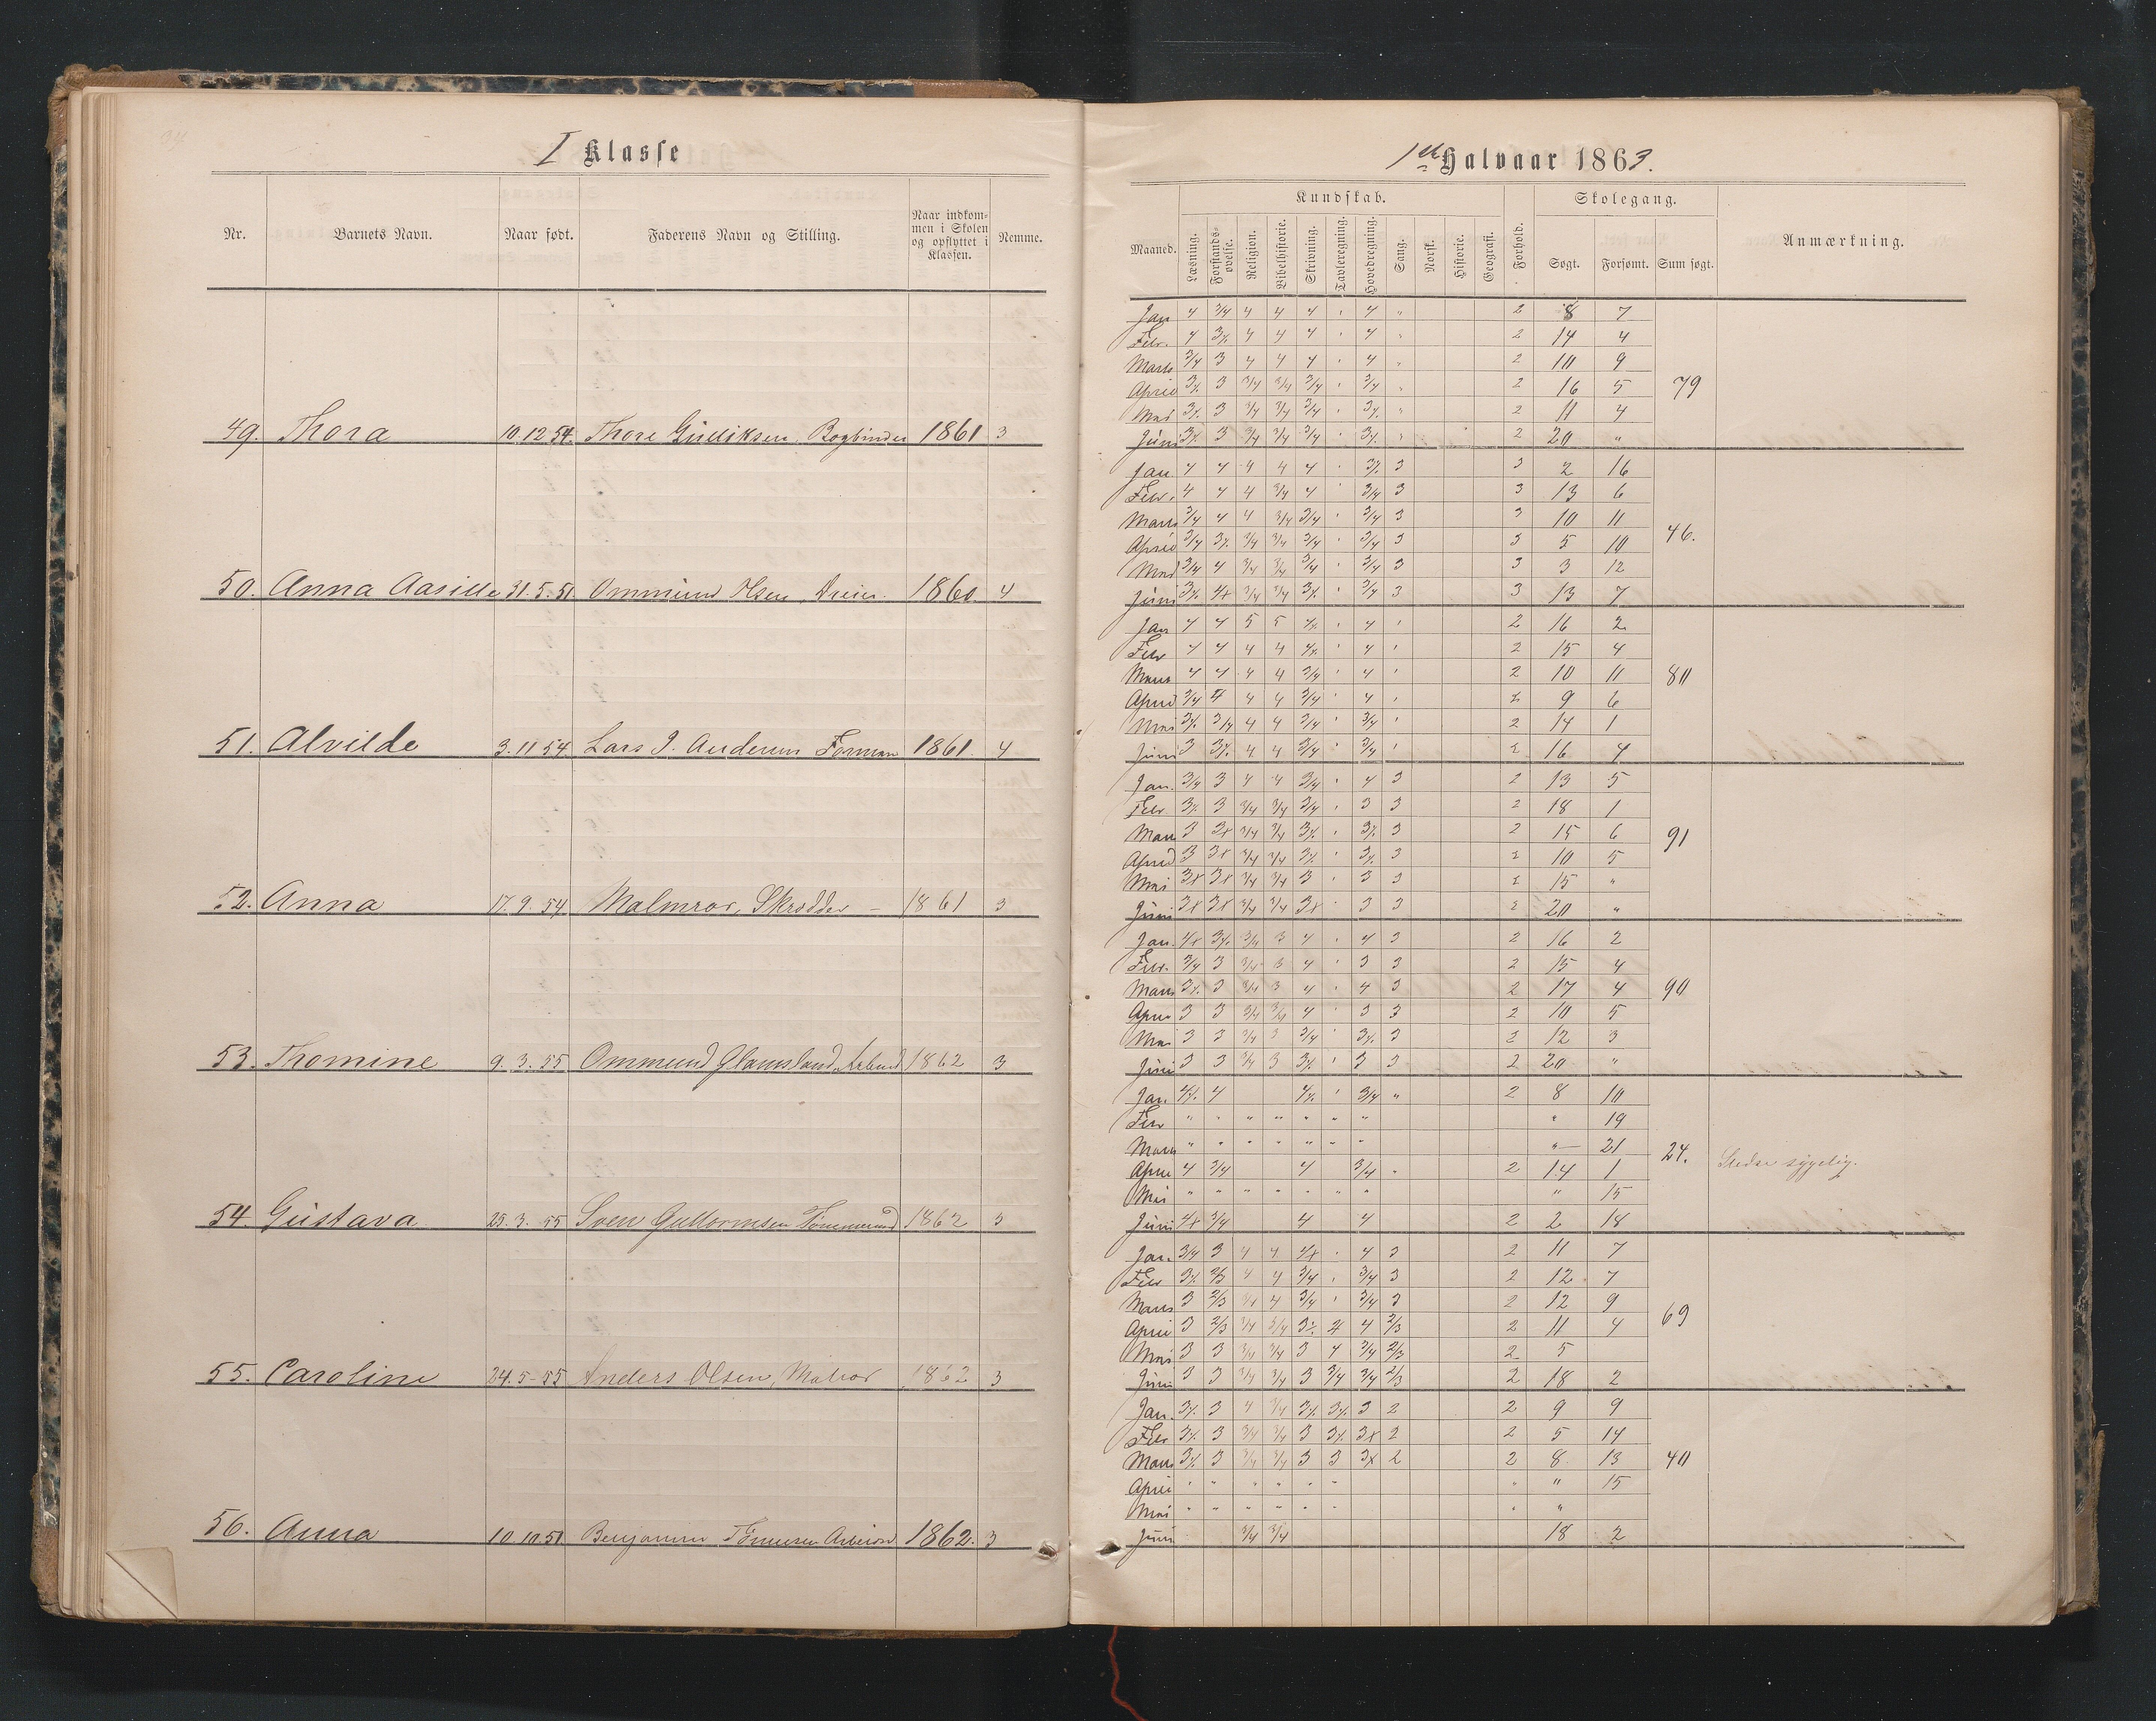 I Klasse
Nr. Barnets Navn. Naar født. Faderens Navn og Stilling. Naar indkommen i Skolen og opflyttet i Klassen. Nemme.
49. Thora 10.12 54. Thore Gudiksen, Bogbinder 1861 3
50. Anna Aasille 31.5.51 Ommund Olsen, Dreier. 1860. 4
51. Alvilde 3.11 54. Lars J. Andersen Formann 1861. 4
52. Anna 17.9 54 Malmros, Skrædder – 1861 3
53. Thomine 9.3.55 Ommund 1862 3
54. Gustava 25.3.55 Sven Guttormsen 1862 3
55. Caroline 24.5-55 Anders Olsen, Matros 1862 3
56. Anna 10.10.51 Benjamin Tønnesen 1862. 3
1ste Halvaar 1863.
Kundskab. Skolegang.
Maaned. Læsning. Forstandsøvelse. Religion. Bibelhistorie. Skrivning. Tavleregning. Hovedregning. Sang. Norsk. Historie. Geografi. Forhold. Søgt. Forsømt. Sum søgt. Anmærkning.
Jan 4 3/4 4 4 4 4 2 8 7
Febr. 4 4 4 4 4 2 14 4
Marts 3/4 3 4 4 4 4 2 10 9
April 3 3/4 3/4 3/4 3/4 2 16 5 79
Mai 3 3/4 3/4 3/4 2 11 4
Juni 3 3/4 3/4 3/4 2 20 "
Jan. 4 4 4 4 4 3 3 2 16
Febr. 4 4 4 3/4 4 3/4 3 3 13 6
Marts 3/4 4 4 3/4 3/4 3/4 3 3 10 11
April 3/4 3/4 3/4 3/4 3/4 3 3 5 10 46.
Mai 3/4 4 3/4 3/4 3/4 3/4 3 3 3 12
Juni 3/4 3/4 3/4 3 3 13 7
Jan 4 4 5 5 4 2 16 2
Febr 4 4 4 4 4 2 15 4
Marts 4 4 4 4 3/4 4 2 10 11 80
April 3/4 4 4 4 3/4 4 2 9 6
Mai 3/4 4 4 3/4 3/4 2 14 1
Juni 3 4 4 3/4 3/4 2 16 4
Jan. 3/4 3 4 4 3/4 4 3 2 13 5
Febr. 3 3/4 3/4 3/4 3 3 2 18 1
Marts 3 3x 3/4 3/4 3 2 15 6 91
April 3 3x 3/4 3/4 3 2 10 5
Mai 3x 3x 3/4 3/4 3 3 3 2 15 "
Juni 3x 3x 3/4 3/4 3x 3 3 2 20 "
Jan. 4x 3/4 3 4 4 3 2 16 2
Febr. 3/4 3 3/4 3 4 3 3 2 15 4
Marts 3 3/4 3 4 4 3 2 17 4 90
April 3 3 3/4 3/4 4 3 3 2 10 5
Mai 3 3 3/4 3 3/4 3 2 12 3
Juni 3 3 3/4 3 3 3 2 20 "
Jan. 4 3/4 " 2 8 10
Febr " " " " " " " " 19
Marts " " " " " " " "– 21
April 4 3/4 4 3/4 2 14 1 24. Meden sygelig.
Mai " " " " " " " " 15
Juni 4x 3/4 4 4 2 2 18
Jan. 3/4 3 4 4 4x 4 3 2 11 7
Febr 2/3 4 4 3/4 3/4 3 2 12 7
Marts 3 2/3 3/4 4 3/4 3/4 3 2 12 9
April 3 2/3 3/4 3/4 4 4 2/3 2 11 4 69
Mai 3 3 3/4 3/4 3 4 3/4 2/3 2 5
Juni 3 3 3/4 3/4 3 3/4 3/4 2/3 2 18 2
Jan. 3 4 3/4 3 2 2 9 9
Febr 3 3/4 3/4 3 3x 2 2 5 14
Marts 3 3/4 3/4 3 3 3x 2 2 8 13 40
April " " " " " " " " 15
Mai " " " " " " " "
Juni 3/4 3/4 18 2